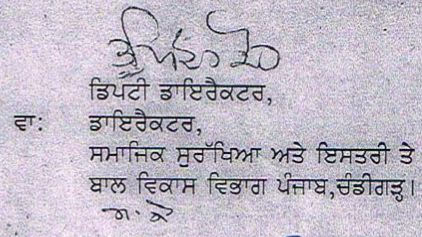 ਡਿਪਟੀ ਡਾਇਰੈਕਟਰ,
ਵਾ: ਡਾਇਰੈਕਟਰ,
ਸਮਾਜਿਕ ਸੁਰੱਖਿਆ ਅਤੇ ਇਸਤਰੀ ਤੇ
ਬਾਲ ਵਿਕਾਸ ਵਿਭਾਗ ਪੰਜਾਬ,ਚੰਡੀਗੜ੍ਹ।